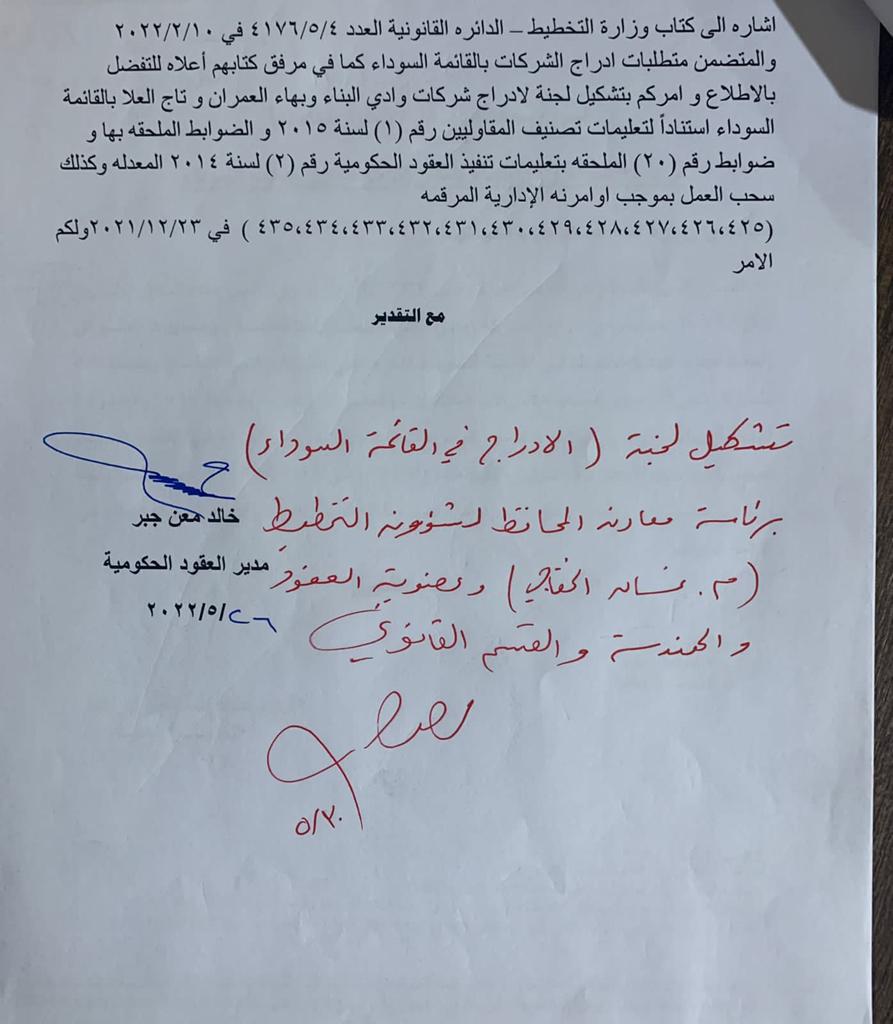 اشاره الى كتاب وزارة التخطيط – الدائره القانونية العدد ٤١٧٦/٥/٤ في ٢٠٢٢/٢/١٠
والمتضمن متطلبات ادراج الشركات بالقائمة السوداء كما في مرفق كتابهم أعلاه للتفضل
بالاطلاع و امركم بتشكيل لجنة لادراج شركات وادي البناء وبهاء العمران و تاج العلا بالقائمة
السوداء استناداً لتعليمات تصنيف المقاوليين رقم (١) لسنة ٢٠١٥ و الضوابط الملحقه بها و
ضوابط رقم (٢٠) الملحقه بتعليمات تنفيذ العقود الحكومية رقم (٢) لسنة ٢٠١٤ المعدله وكذلك
سحب العمل بموجب اوامرنه الإدارية المرقمه
(٤٢٥،٤٢٦،٤٢٧،٤٢٨،٤٢٩،٤٣٠،٤٣١،٤٣٢،٤٣٣،٤٣٤،٤٣٥ ) في ٢٠٢١/١٢/٢٣ولكم
الامر
مع التقدير
تشكيل لجنة (الادراج في القائمة السوداء)
برئاسة معاون المحافظ لشؤون التخطيط
(م. غسان الخفاجي) وعضوية العقود
و الهندسة و القسم القانوني
٥/٣٠
خالد معن جبر
مدير العقود الحكومية
٢٠٢٢/٥/٢٦